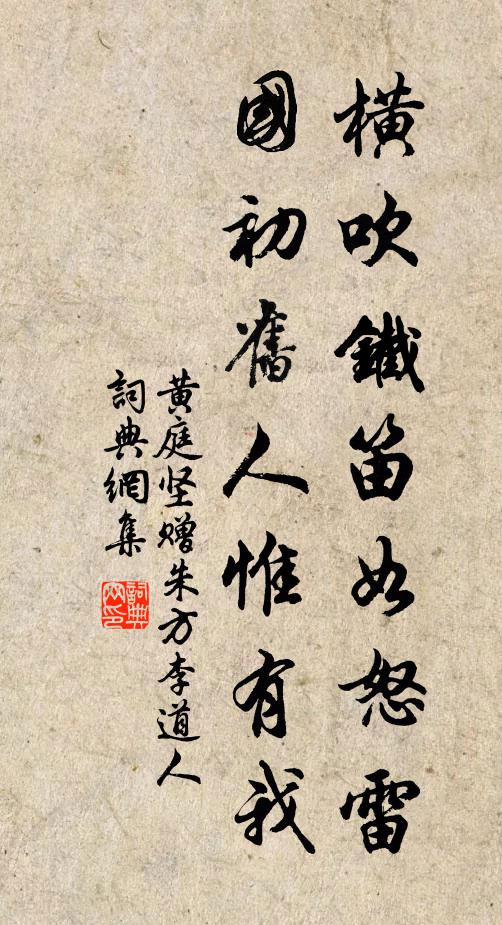 橫吹鐵笛如怒雷
國初舊人惟有我
黄庭坚贈朱方李道人
詞典網集
詞典網印